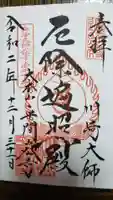 奉拝
川崎大師
厄除遍照殿
大本山平間寺
令和二年十二月三十一日